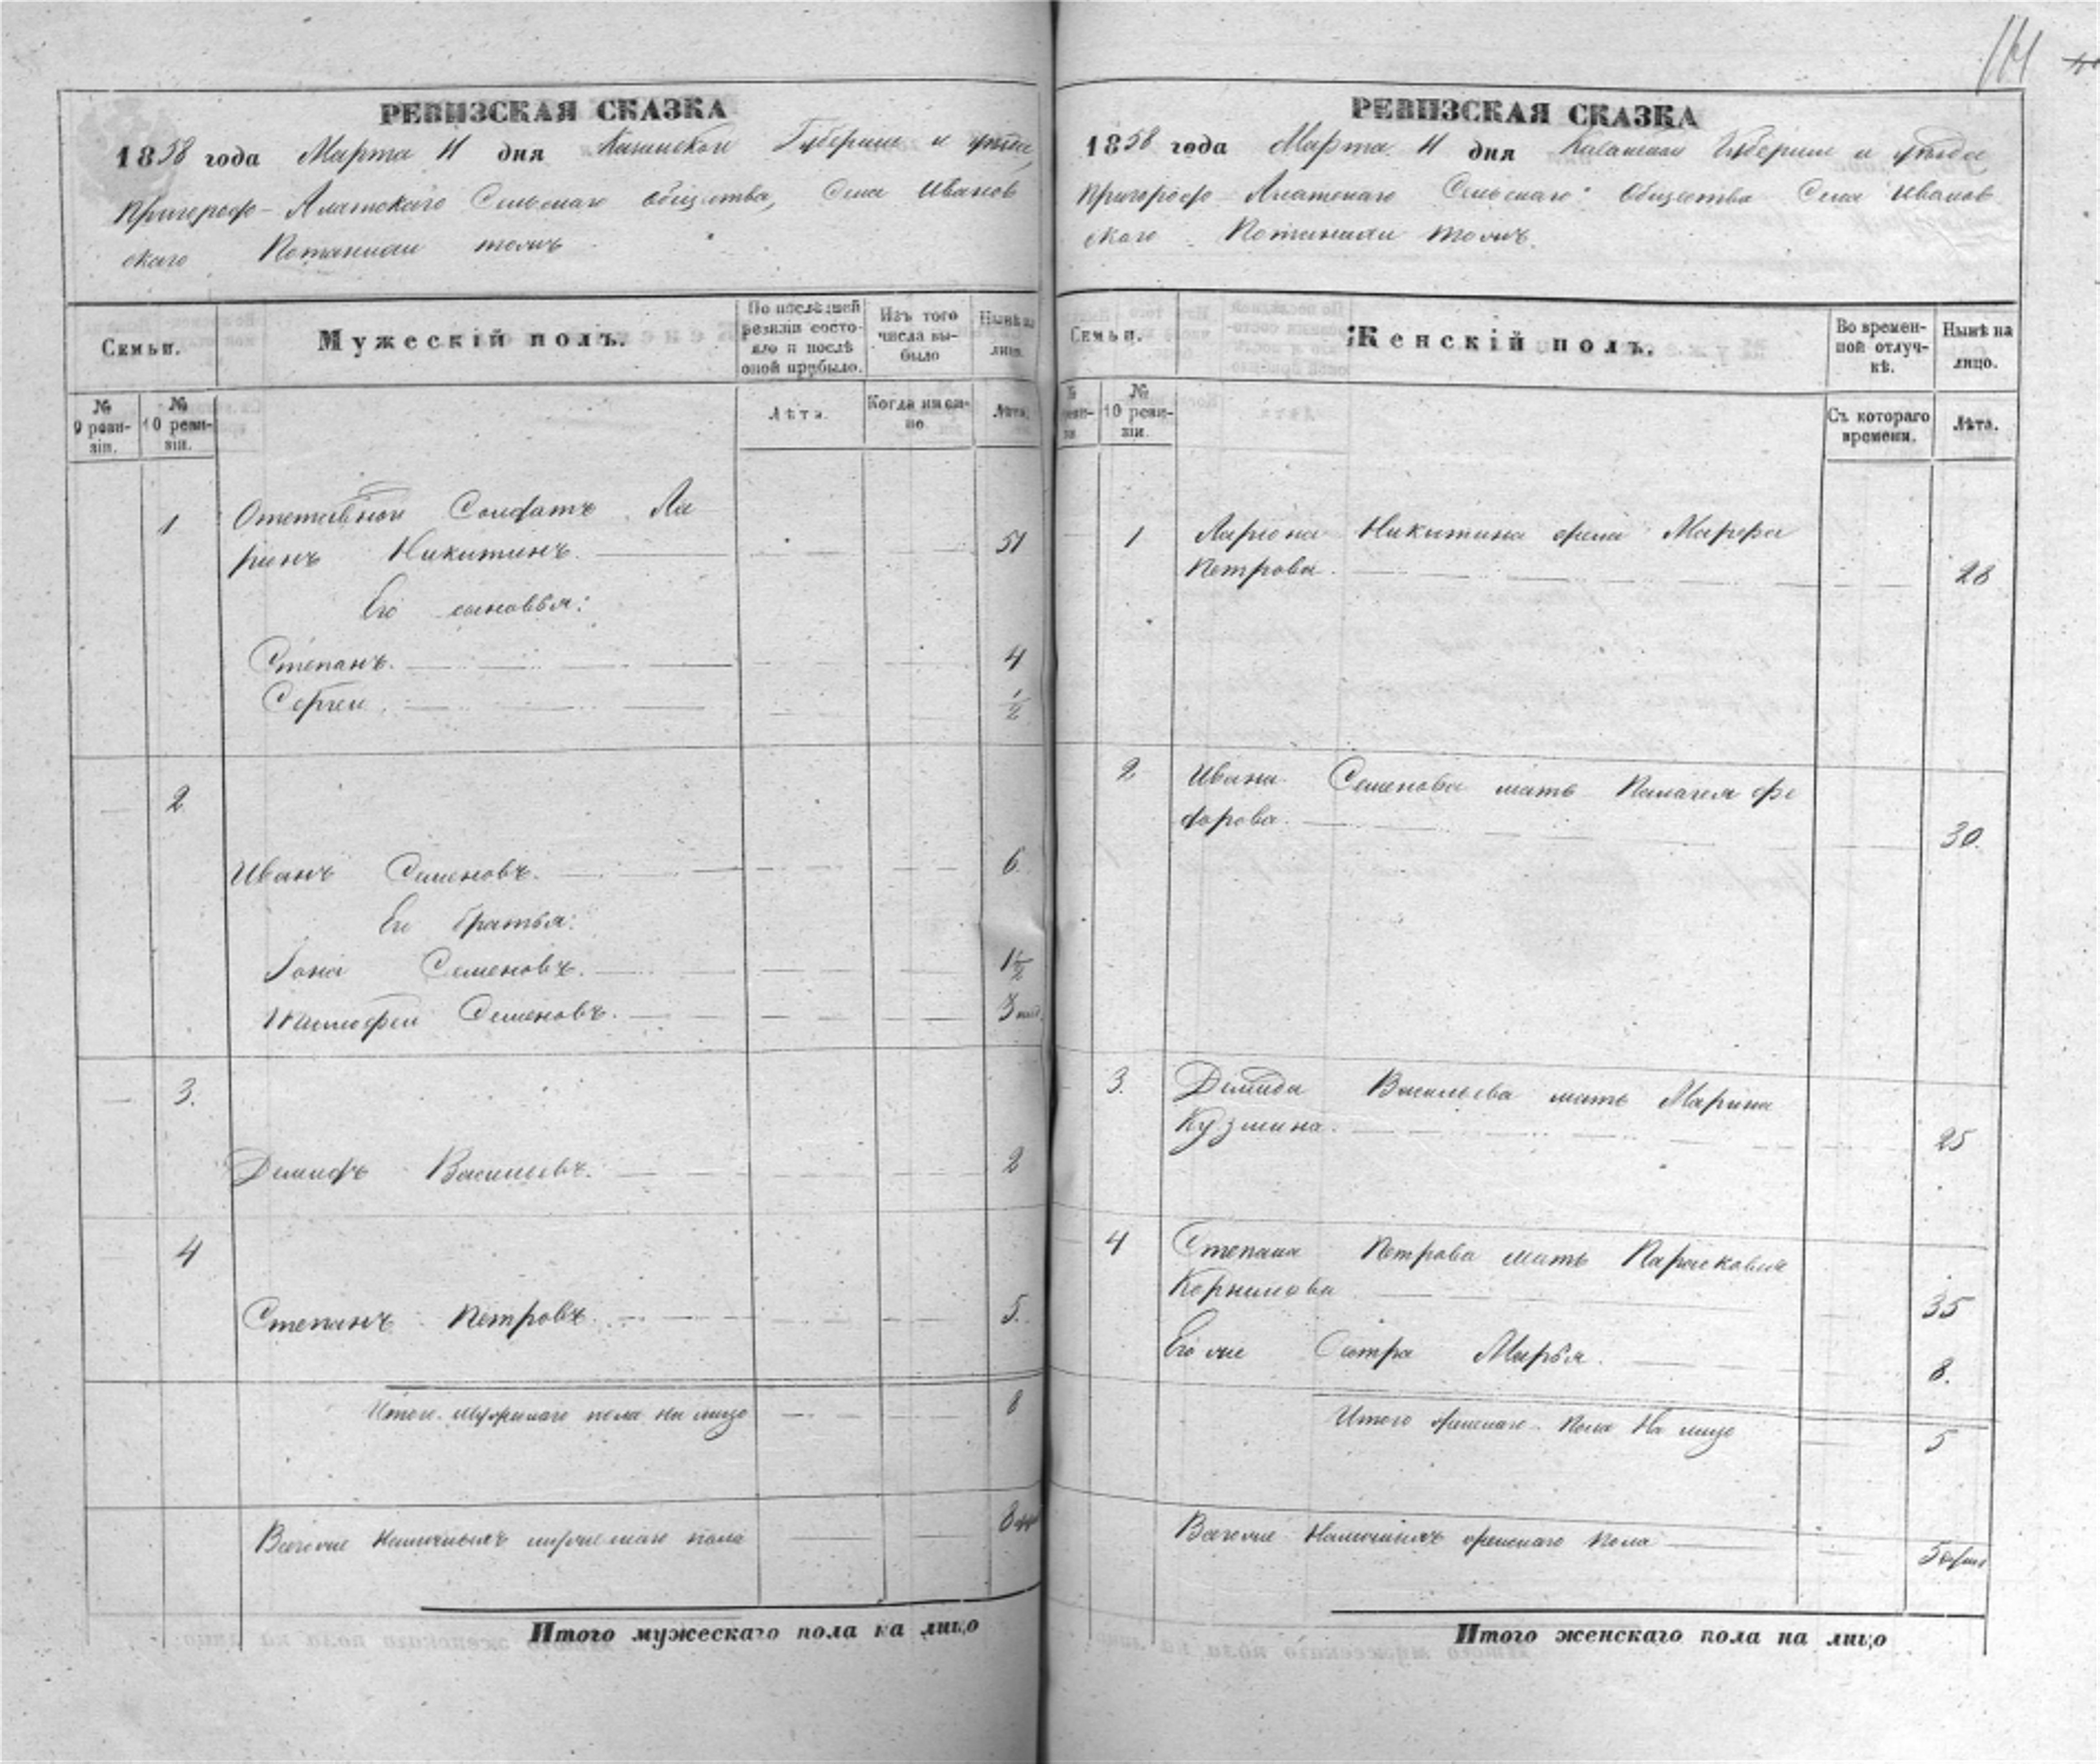 141
РЕВИЗСКАЯ СКАЗКА
1858 года Марта 11 дня Казанской Губернии и уезда
Пригородо-Алатскаго Сельскаго общества, Села Иванов
скаго Потанихи тожъ
Семьи.
Мужескій полъ.
По послѣдней ревизіи состояло и послѣ оной прибыло.
Изъ того числа выбыло
Нынѣ на лицо.
№ 9 ревизіи.
№ 10 ревизіи.
Лѣта.
Когда именно
Лѣта.
1 Отставной Солдатъ Ла
ріонъ Никитинъ. 51
Его сыновья:
Степанъ. 4
Сергей. 1/2
2
Иванъ Семеновъ. 6
Его братья:
Іона Семеновъ. 1 1/2
Тимофей Семеновъ. 3
3.
Демидъ Васильевъ. 2
4
Степанъ Петровъ. 5.
Итого мужскаго пола на лицо 8
Всего же наличныхъ мужескаго пола 8
Итого мужескаго пола на лицо
РЕВИЗСКАЯ СКАЗКА
1858 года Марта 11 дня Казанской Губерніи и уезда
Пригородо Алатскаго Сельскаго Общества Села Иванов
скаго Потанихи тожъ.
Семьи.
Женскій полъ.
Во временной отлучкѣ.
Нынѣ на лицо.
№ 10 ревизіи.
Съ котораго времени.
Лѣта.
1 Ларіона Никитина жена Марфа
Петрова. 28
2 Ивана Семенова мать Палагея Фе
дорова. 30.
3. Демида Васильева мать Марина
Кузмина. 25
4 Степана Петрова мать Парасковья
Корнилова 35
Его же Сестра Марья. 8.
Итого женскаго пола на лицо 5
Всего же Наличныхъ женскаго пола 5
Итого женскаго пола на лицо